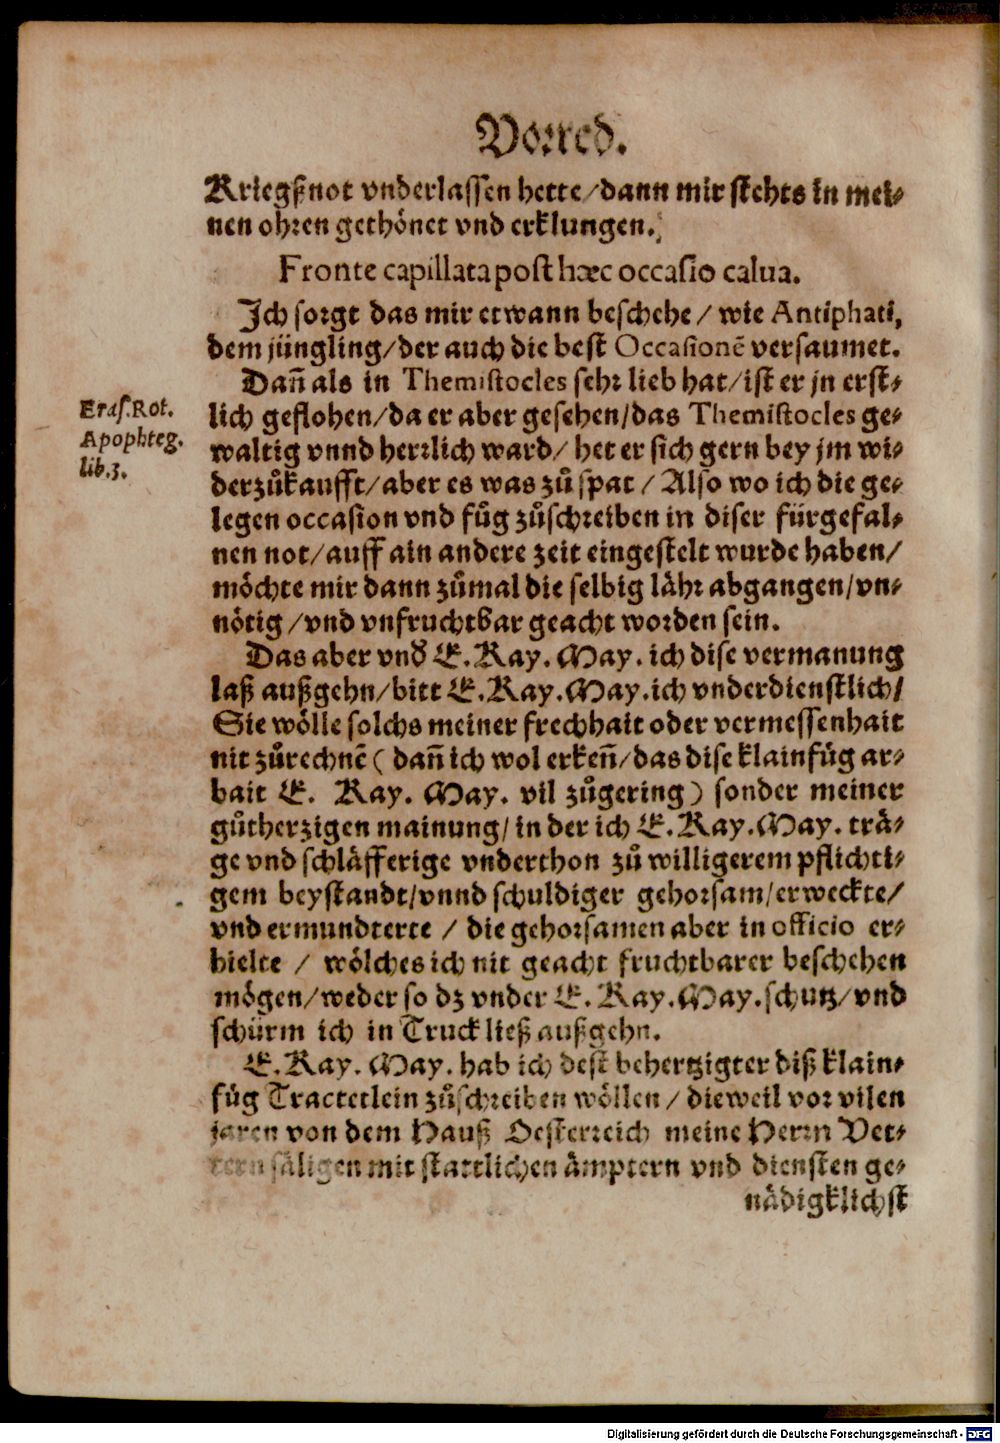 Vorred.
Kriegßnot vnderlassen hette/dann mir stehts in mei⸗
nen ohren gethönet vnd erklungen.
Fronte capillata post hæc occasio calua.
Ich sorgt das mir etwann beschehe / wie Antiphati,
dem jüngling/der auch die best Occasionē versaumet.
Dañ als in Themistocles sehr lieb hat/ist er jn erst⸗
lich geflohen/da er aber gesehen/das Themistocles ge⸗
waltig vnnd herrlich ward/ het er sich gern bey jm wi⸗
derzůkaufft/aber es was zů spat / Also wo ich die ge⸗
legen occasion vnd fůg zůschreiben in diser fürgefal⸗
nen not/auff ain andere zeit eingestelt wurde haben/
möchte mir dann zůmal die selbig lähr abgangen/vn⸗
nötig /vnd vnfruchtbar geacht worden sein.
Eras.Rot.
Apophteg.
lib.3.
Das aber vnd̕ E.Kay.May.ich dise vermanung
laß außgehn/bitt E.Kay.May.ich vnderdienstlich/
Sie wölle solchs meiner frechhait oder vermessenhait
nit zůrechnē ( dañ ich wol erkeñ/das dise klainfůg ar⸗
bait E. Kay. May. vil zůgering) sonder meiner
gůtherzigen mainung/ in der ich E.Kay.May. trä⸗
ge vnd schläfferige vnderthon zů willigerem pflichti⸗
gem beystandt/vnnd schuldiger gehorsam/erweckte/
vnd ermundterte / die gehorsamen aber in officio er⸗
hielte / wölches ich nit geacht fruchtbarer beschehen
mögen/weder so dz vnder E. Kay.May.schutz/vnd
schürm ich in Truck ließ außgehn.
E.Kay. May. hab ich dest behertzigter diß klain⸗
fůg Tractetlein zůschreiben wöllen / dieweil vor vilen
jaren von dem Hauß Oesterreich meine Herrn Vet⸗
tern säligen mit stattlichen ämptern vnd diensten ge⸗
nädigklichst
Digitalisierung gefördert durch die Deutsche Forschungsgemeinschaft - DFG